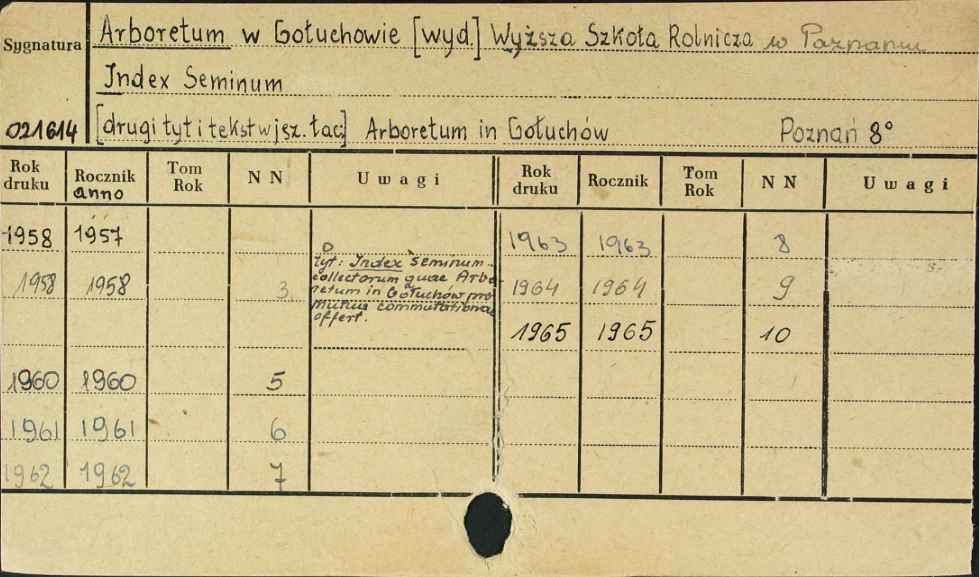 Sygnatura
Arboretum w Gołuchowie [wyd.] Wyższa Szkoła Rolnicza w Poznaniu
Index Seminum
021614 [drugi tyt i tekst w jęz. łac.] Arboretum in Gołuchów Poznań 8°
Rok druku Rocznik anno Tom Rok N N Uwagi Rok druku Rocznik Tom Rok N N Uwagi
1958 1957
1958 1958 3
tyt: Index seminum
collectorum quae Arbo-
retum in Gołuchów pro
mutua commutatione
offert.
1960 1960 5
1961 1961 6
1962 1962 7
1963 1963 8
1964 1964 9
1965 1965 10